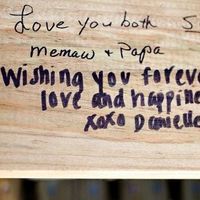 Love you both S
memaw + Papa
Wishing you forev
love and happine
xoxo Danielle